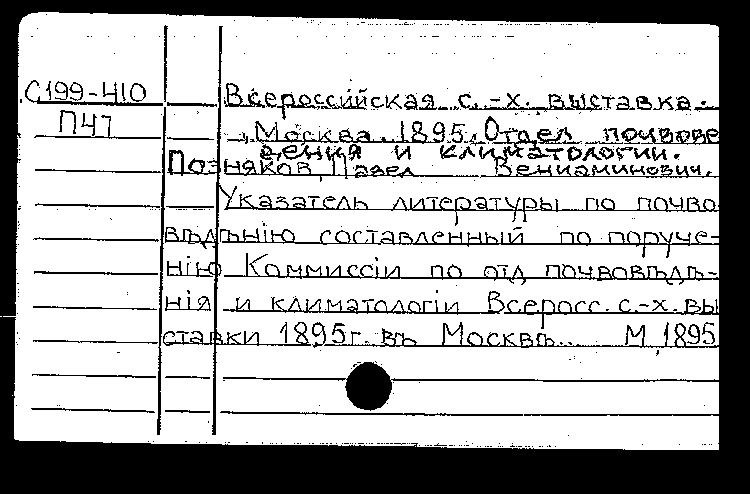 С199-410 Всероссийская с.-х. выставка.
П47 Москва. 1895. Отдел почвове
дения и климатологии.
Позняков, Павел Вениаминович.
Указатель литературы по почво
вѣдѣнію составленный по поруче-
нію Коммиссіи по отд почвовѣдѣ-
нія и климатологіи Всеросс. с.-х. вы
ставки 1895г. въ Москвѣ... М, 1895